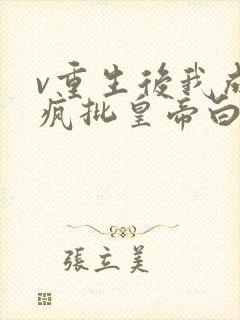 v重生後我成
瘋批皇帝白
張立美